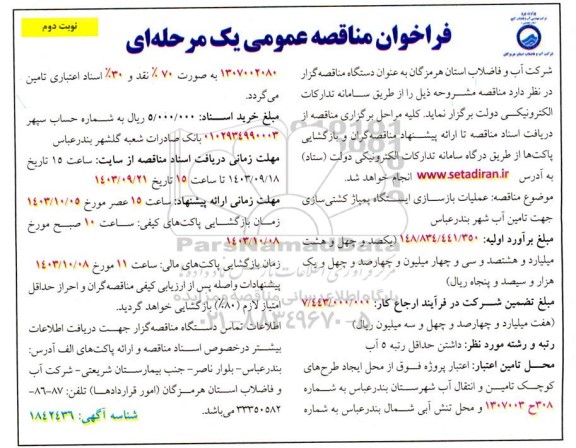 نوبت دوم
فراخوان مناقصه عمومی یک مرحله‌ای
شرکت آب و فاضلاب استان هرمزگان به عنوان دستگاه مناقصه‌گزار
در نظر دارد مناقصه مشروحه ذیل را از طریق سامانه تدارکات
الکترونیکی دولت برگزار نماید. کلیه مراحل برگزاری مناقصه از
دریافت اسناد مناقصه تا ارائه پیشنهاد مناقصه‌گران و بازگشایی
پاکت‌ها از طریق درگاه سامانه تدارکات الکترونیکی دولت (ستاد)
به آدرس www.setadiran.ir انجام خواهد شد.
موضوع مناقصه: عملیات بازسازی ایستگاه پمپاژ کشتی‌سازی
جهت تامین آب شهر بندرعباس
مبلغ برآورد اولیه: ۱۴۸/۸۳۴/۴۴۱/۳۵۰ (یکصد و چهل و هشت
میلیارد و هشتصد و سی و چهار میلیون و چهارصد و چهل و یک
هزار و سیصد و پنجاه ریال)
مبلغ تضمین شرکت در فرآیند ارجاع کار: ۷/۴۴۳/۰۰۰/۰۰۰
(هفت میلیارد و چهارصد و چهل و سه میلیون ریال)
رتبه و رشته مورد نظر: داشتن حداقل رتبه ۵ آب
محل تامین اعتبار: اعتبار پروژه فوق از محل ایجاد طرح‌های
کوچک تامین و انتقال آب شهرستان بندرعباس به شماره
۳۰۸ح۱۳۰۷۰۰۳ و محل تنش آبی شمال بندرعباس به شماره
۱۳۰۷۰۰۲۰۸۰ به صورت ۷۰٪ نقد و ۳۰٪ اسناد اعتباری تامین
می‌گردد.
مبلغ خرید اسناد: ۵/۰۰۰/۰۰۰ ریال به شماره حساب سپهر
۰۱۰۲۹۳۴۹۹۰۰۰۳ بانک صادرات شعبه گلشهر بندرعباس
مهلت زمانی دریافت اسناد مناقصه از سایت: ساعت ۱۵ تاریخ
۱۴۰۳/۰۹/۱۸ تا ساعت ۱۵ تاریخ ۱۴۰۳/۰۹/۲۱
مهلت زمانی ارائه پیشنهاد: ساعت ۱۵ عصر مورخ ۱۴۰۳/۱۰/۰۵
زمان بازگشایی پاکت‌های کیفی: ساعت ۱۰ صبح مورخ
۱۴۰۳/۱۰/۰۸
زمان بازگشایی پاکت‌های مالی: ساعت ۱۱ مورخ ۱۴۰۳/۱۰/۰۸
پیشنهادات واصله پس از ارزیابی کیفی مناقصه‌گران و احراز حداقل
امتیاز لازم (۸۰٪) بازگشایی خواهد گردید.
اطلاعات تماس دستگاه مناقصه‌گزار جهت دریافت اطلاعات
بیشتر درخصوص اسناد مناقصه و ارائه پاکت‌های الف آدرس:
بندرعباس- بلوار ناصر- جنب بیمارستان شریعتی- شرکت آب
و فاضلاب استان هرمزگان (امور قراردادها) تلفن: ۸۷-۸۶-
۳۳۳۵۰۵۸۲ می‌باشد.
شناسه آگهی: ۱۸۴۲۴۳۶
ParsNamadData
۰۲۱-۸۸۳۴۹۶۷۰-۵